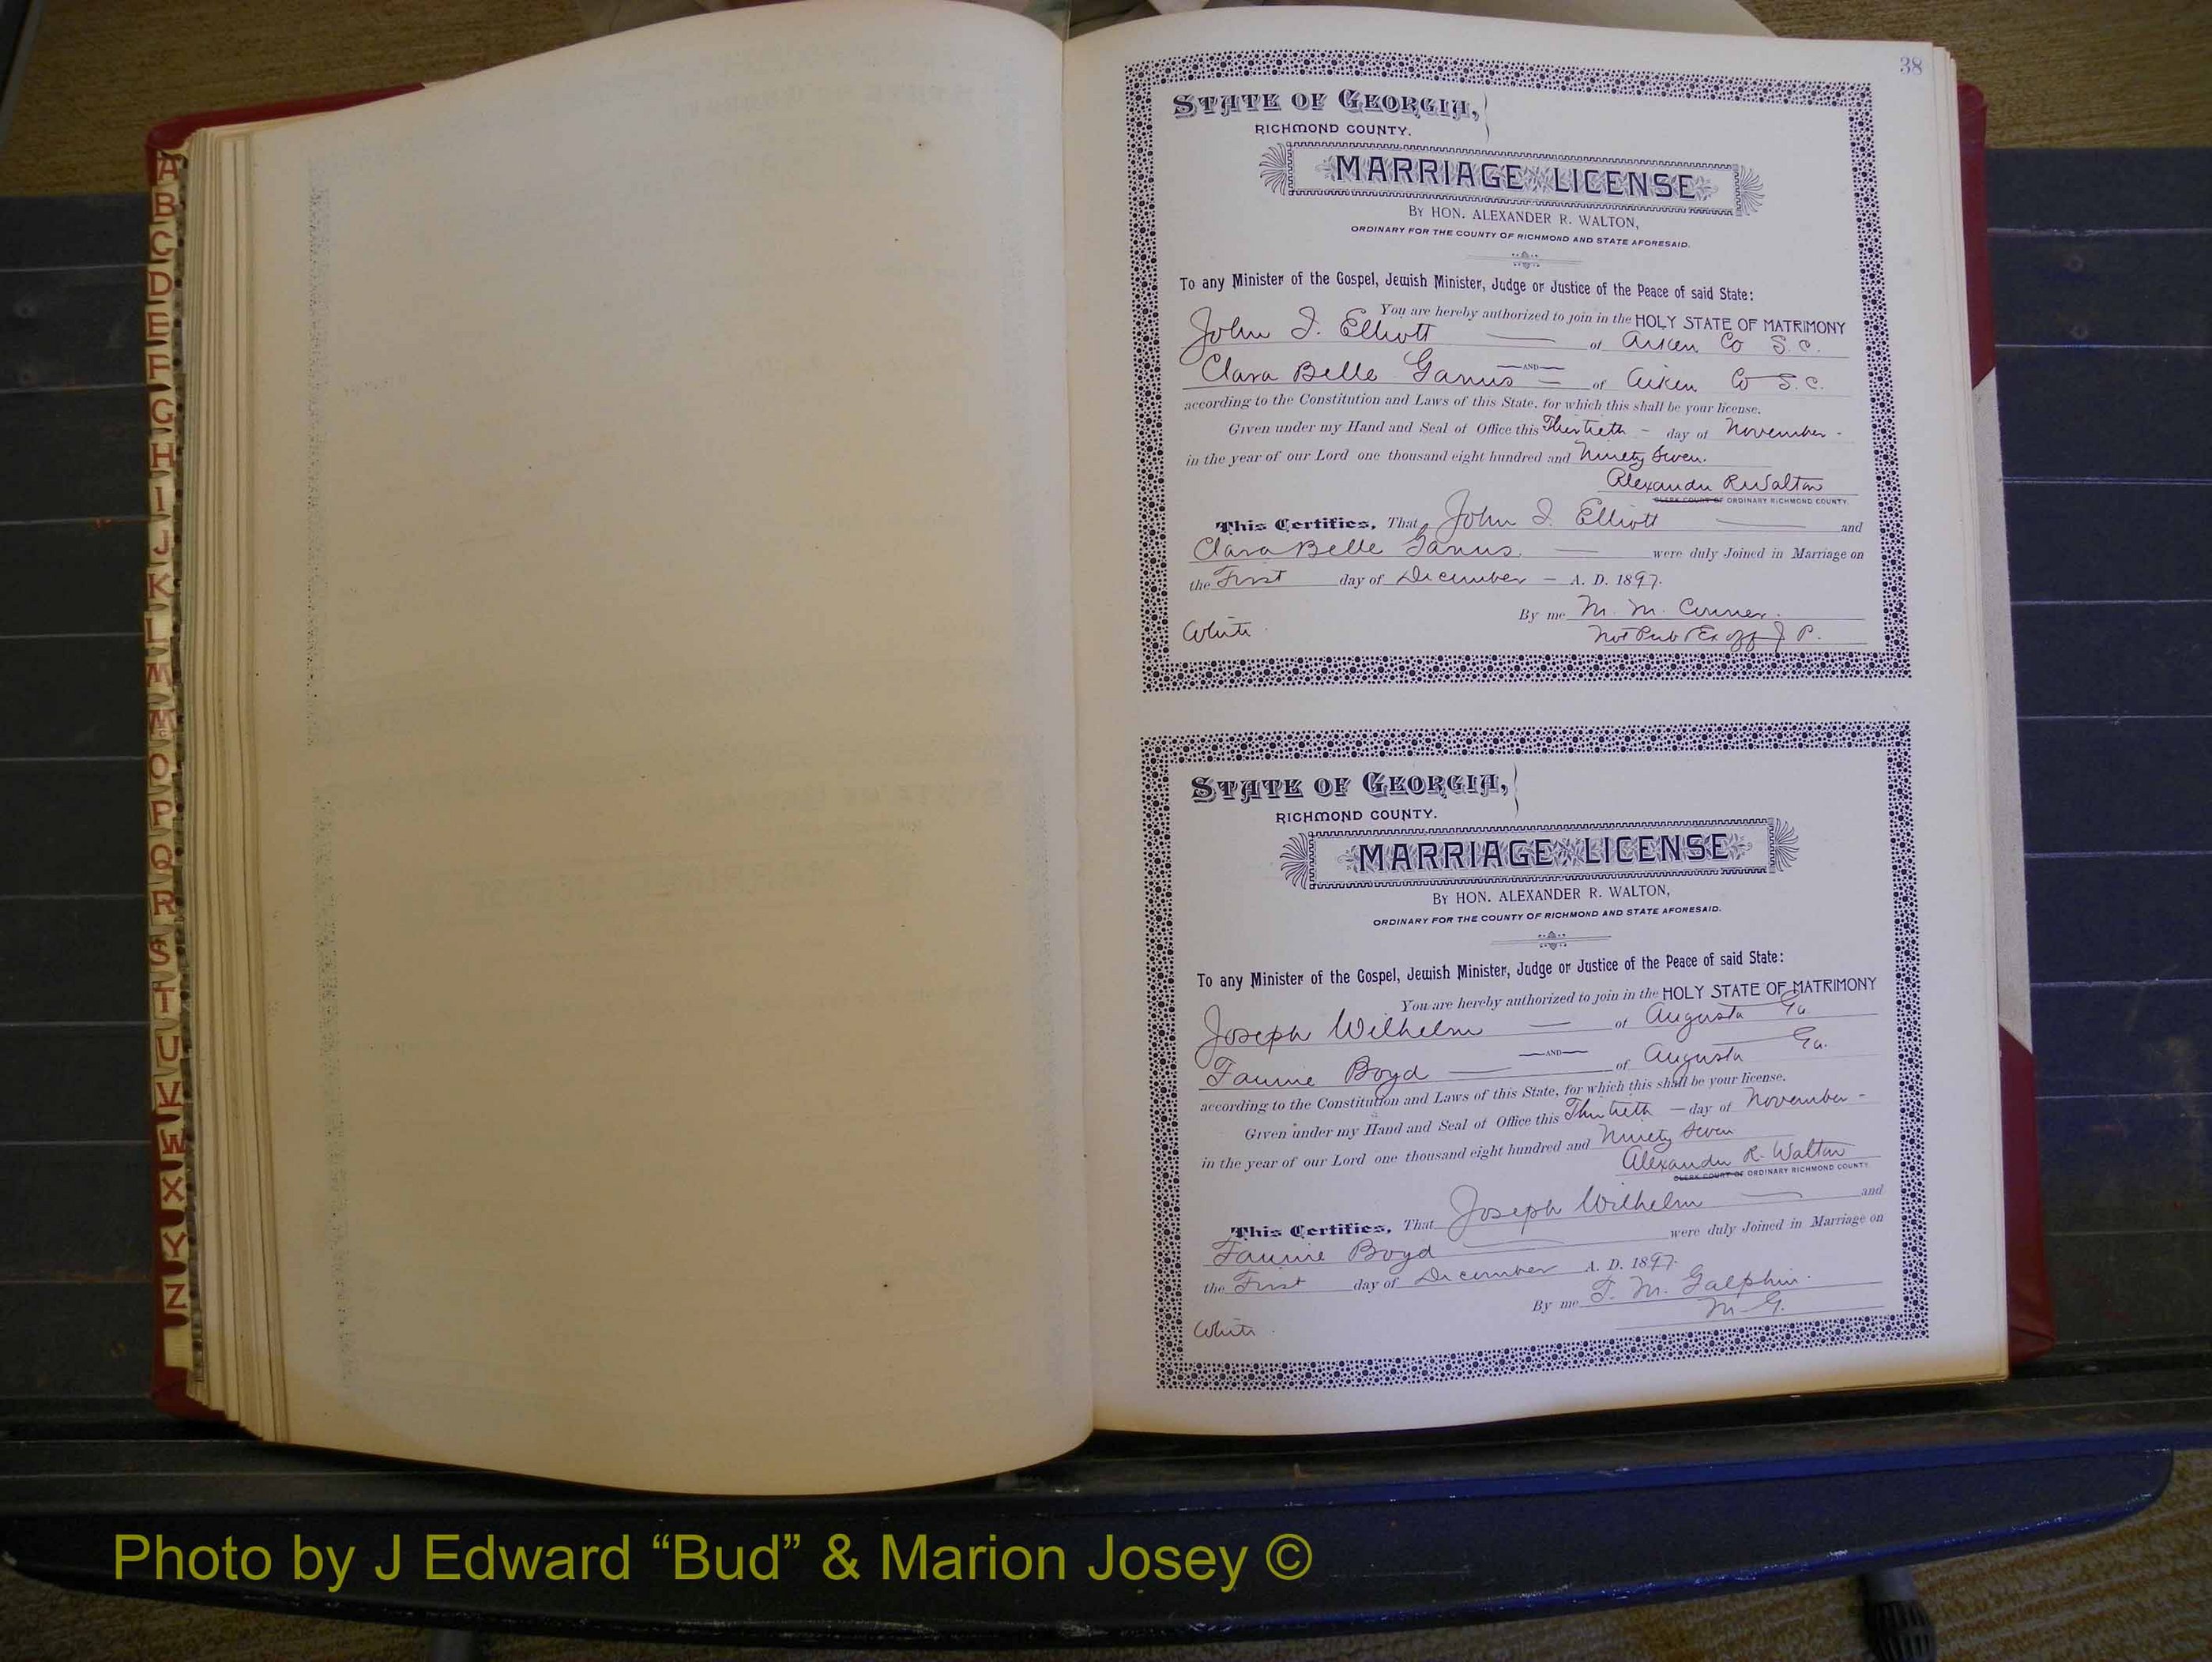 A
B
C
D
E
F
G
H
I
J
K
L
M
Mc
O
P
Q
R
S
T
U
V
W
X
Y
Z
38
STATE OF GEORGIA,
RICHMOND COUNTY.
MARRIAGE LICENSE
BY HON. ALEXANDER R. WALTON,
ORDINARY FOR THE COUNTY OF RICHMOND AND STATE AFORESAID.
To any Minister of the Gospel, Jewish Minister, Judge or Justice of the Peace of said State:
You are hereby authorized to join in the HOLY STATE OF MATRIMONY
John I. Elliott of Aiken Co S.C.
AND
Clara Belle Ganus of Aiken Co S.C.
according to the Constitution and Laws of this State, for which this shall be your license.
Given under my Hand and Seal of Office this Thirtieth - day of November -
in the year of our Lord one thousand eight hundred and Ninety Seven.
Alexander R Walton
CLERK COURT OF ORDINARY RICHMOND COUNTY.
This Certifies, That John I. Elliott and
Clara Belle Ganus were duly Joined in Marriage on
the First day of December - A. D. 1897.
By me M. M. Conner.
White. Not Pub & Ex off J P.
STATE OF GEORGIA,
RICHMOND COUNTY.
MARRIAGE LICENSE
BY HON. ALEXANDER R. WALTON,
ORDINARY FOR THE COUNTY OF RICHMOND AND STATE AFORESAID.
To any Minister of the Gospel, Jewish Minister, Judge or Justice of the Peace of said State:
You are hereby authorized to join in the HOLY STATE OF MATRIMONY
Joseph Wilhelm of Augusta Ga.
AND
Fannie Boyd of Augusta Ga.
according to the Constitution and Laws of this State, for which this shall be your license.
Given under my Hand and Seal of Office this Thirtieth - day of November -
in the year of our Lord one thousand eight hundred and Ninety Seven
Alexander R. Walton
CLERK COURT OF ORDINARY RICHMOND COUNTY
This Certifies, That Joseph Wilhelm and
Fannie Boyd were duly Joined in Marriage on
the First day of December A. D. 1897.
By me T. M. Galphin.
M. G.
White.
Photo by J Edward “Bud” & Marion Josey ©